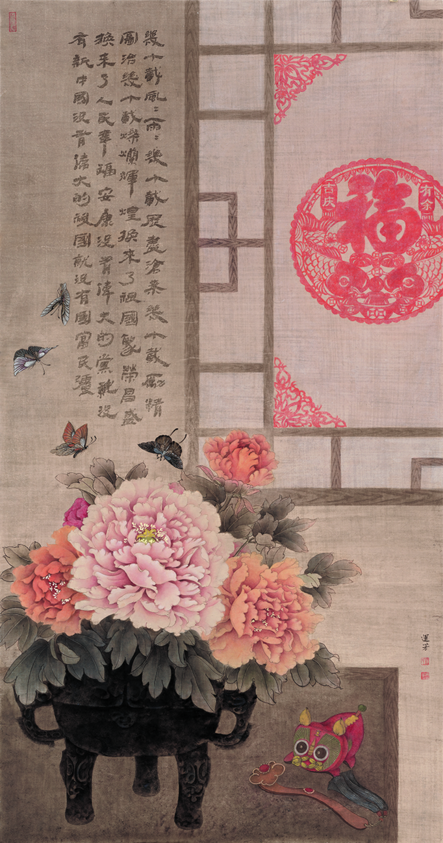 幾十載風〻雨〻幾十載歷盡滄桑幾十載勵精
圖治幾十載燦爛輝煌換來了祖國繁榮昌盛
換來了人民幸福安康沒有偉大的黨就沒
有新中國沒有偉大的祖國就沒有國富民強
吉庆
有余
福